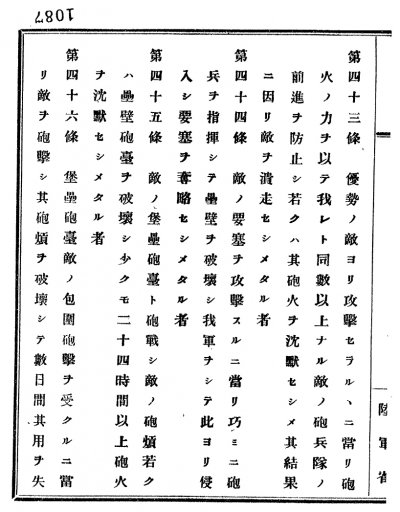 1087
第四十三條　優勢ノ敵ヨリ攻擊セラルヽニ當リ砲
火ノ力ヲ以テ我レト同數以上ナル敵ノ砲兵隊ノ
前進ヲ防止シ若クハ其砲火ヲ沈默セシメ其結果
ニ因リ敵ヲ潰走セシメタル者
第四十四條　敵ノ要塞ヲ攻擊スルニ當リ巧ミニ砲
兵ヲ指揮シテ壘壁ヲ破壞シ我軍ヲシテ此ヨリ侵
入シ要塞ヲ奪略セシメタル者
第四十五條　敵ノ堡壘砲臺ト砲戰シ敵ノ砲煩若ク
ハ壘壁砲臺ヲ破壞シ少クモ二十四時間以上砲火
ヲ沈默セシメタル者
第四十六條　堡壘砲臺敵ノ包圍砲擊ヲ受クルニ當
リ敵ヲ砲擊シ其砲煩ヲ破壞シテ數日間其用ヲ失
陸軍省